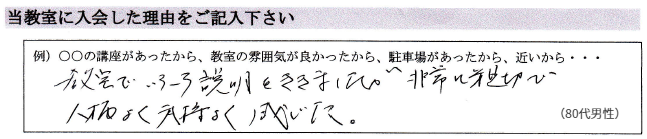 当教室に入会した理由をご記入下さい
例）〇〇の講座があったから、教室の雰囲気が良かったから、駐車場があったから、近いから・・・
教室でいろいろ説明をききましたが 非常に親切で
人柄よく気持よく感じた。
(80代男性)